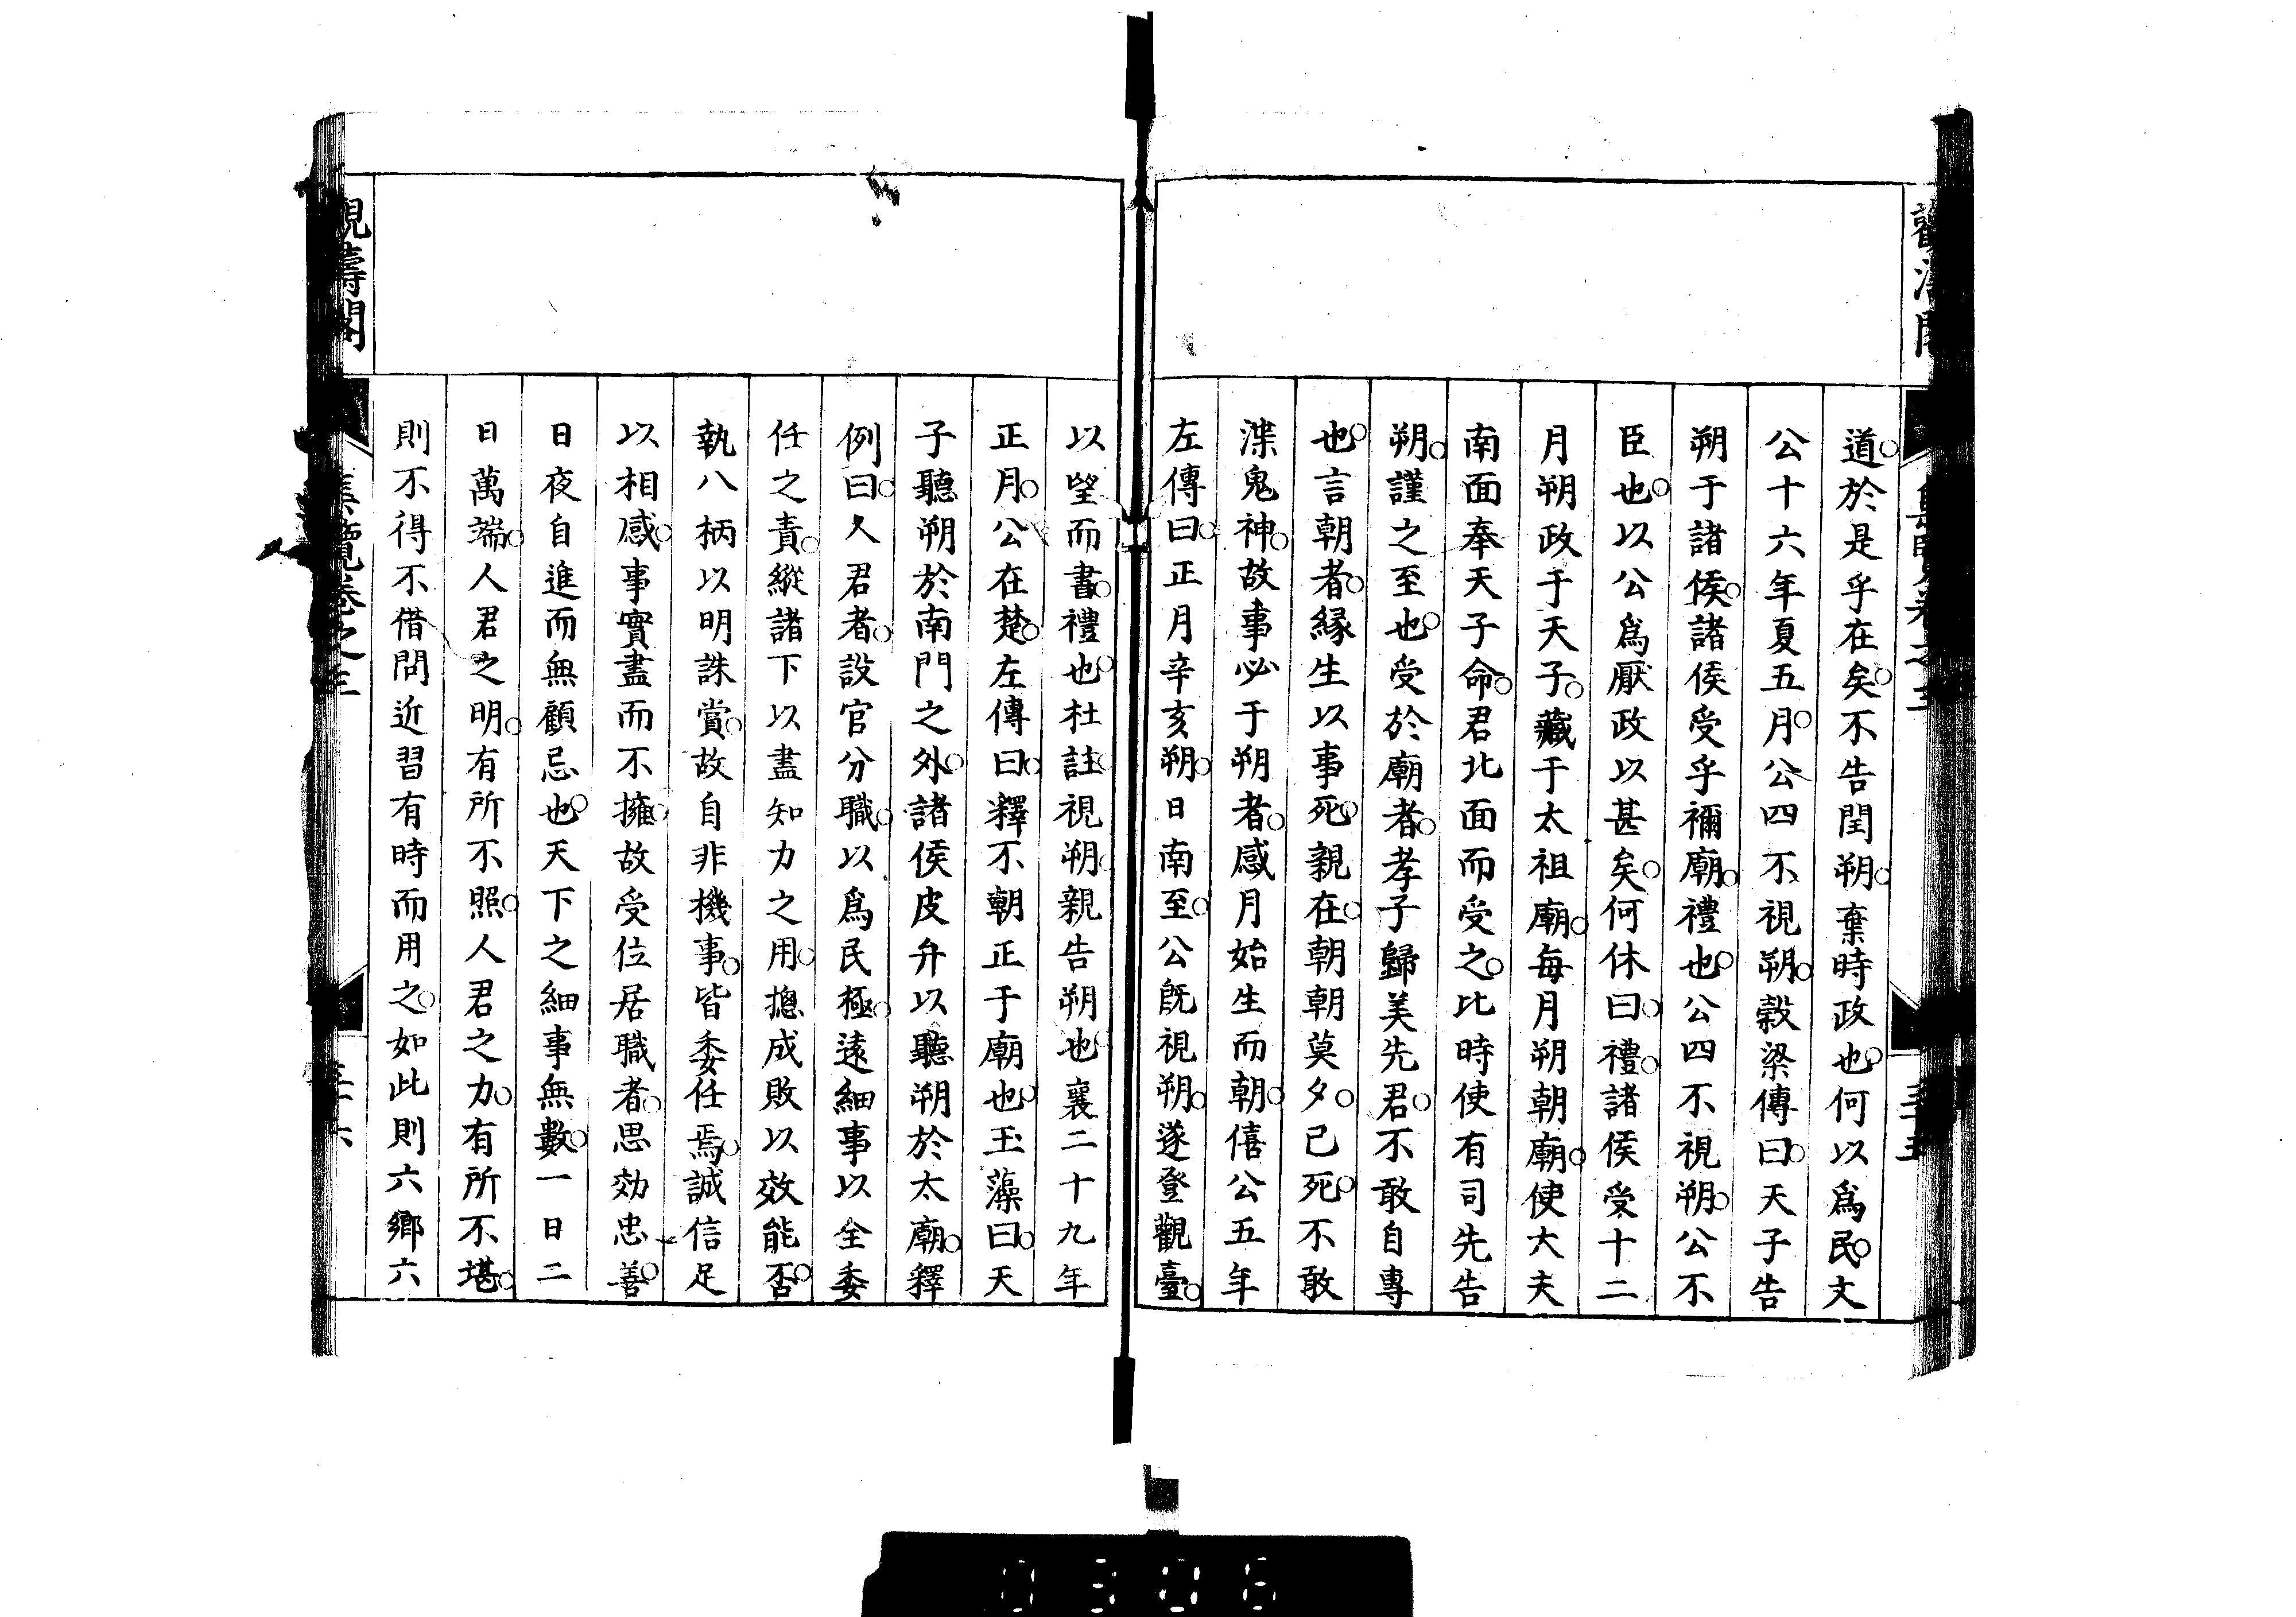 道於是乎在矣不告閏朔棄時政也何以爲民文
公十六年夏五月公四不視朔穀梁傳曰天子告
朔于諸侯諸侯受乎禰廟禮也公四不視朔公不
臣也以公爲厭政以甚矣何休曰禮諸侯受十二
月朔政于天子藏于太祖廟每月朔朝廟使大夫
南面奉天子命君北面而受之比時使有司先告
朔謹之至也受於廟者孝子歸美先君不敢自專
也言朝者緣生以事死親在朝朝莫夕已死不敢
渫鬼神故事必于朔者感月始生而朝僖公五年
左傳曰正月辛亥朔日南至公旣視朔遂登觀臺
以望而書禮也杜註視朔親告朔也襄二十九年
正月公在楚左傳曰釋不朝正于廟也玉藻曰天
子聽朔於南門之外諸侯皮弁以聽朔於太廟釋
例曰人君者設官分職以爲民極遠細事以全委
任之責縱諸下以盡知力之用摠成敗以效能否
執八柄以明誅賞故自非機事皆委任焉誠信足
以相感事實盡而不擁故受位居職者思効忠善
日夜自進而無顧忌也天下之細事無數一日二
日萬端人君之明有所不照人君之力有所不堪
則不得不借問近習有時而用之如此則六鄉六
觀濤閣
集覽卷之三